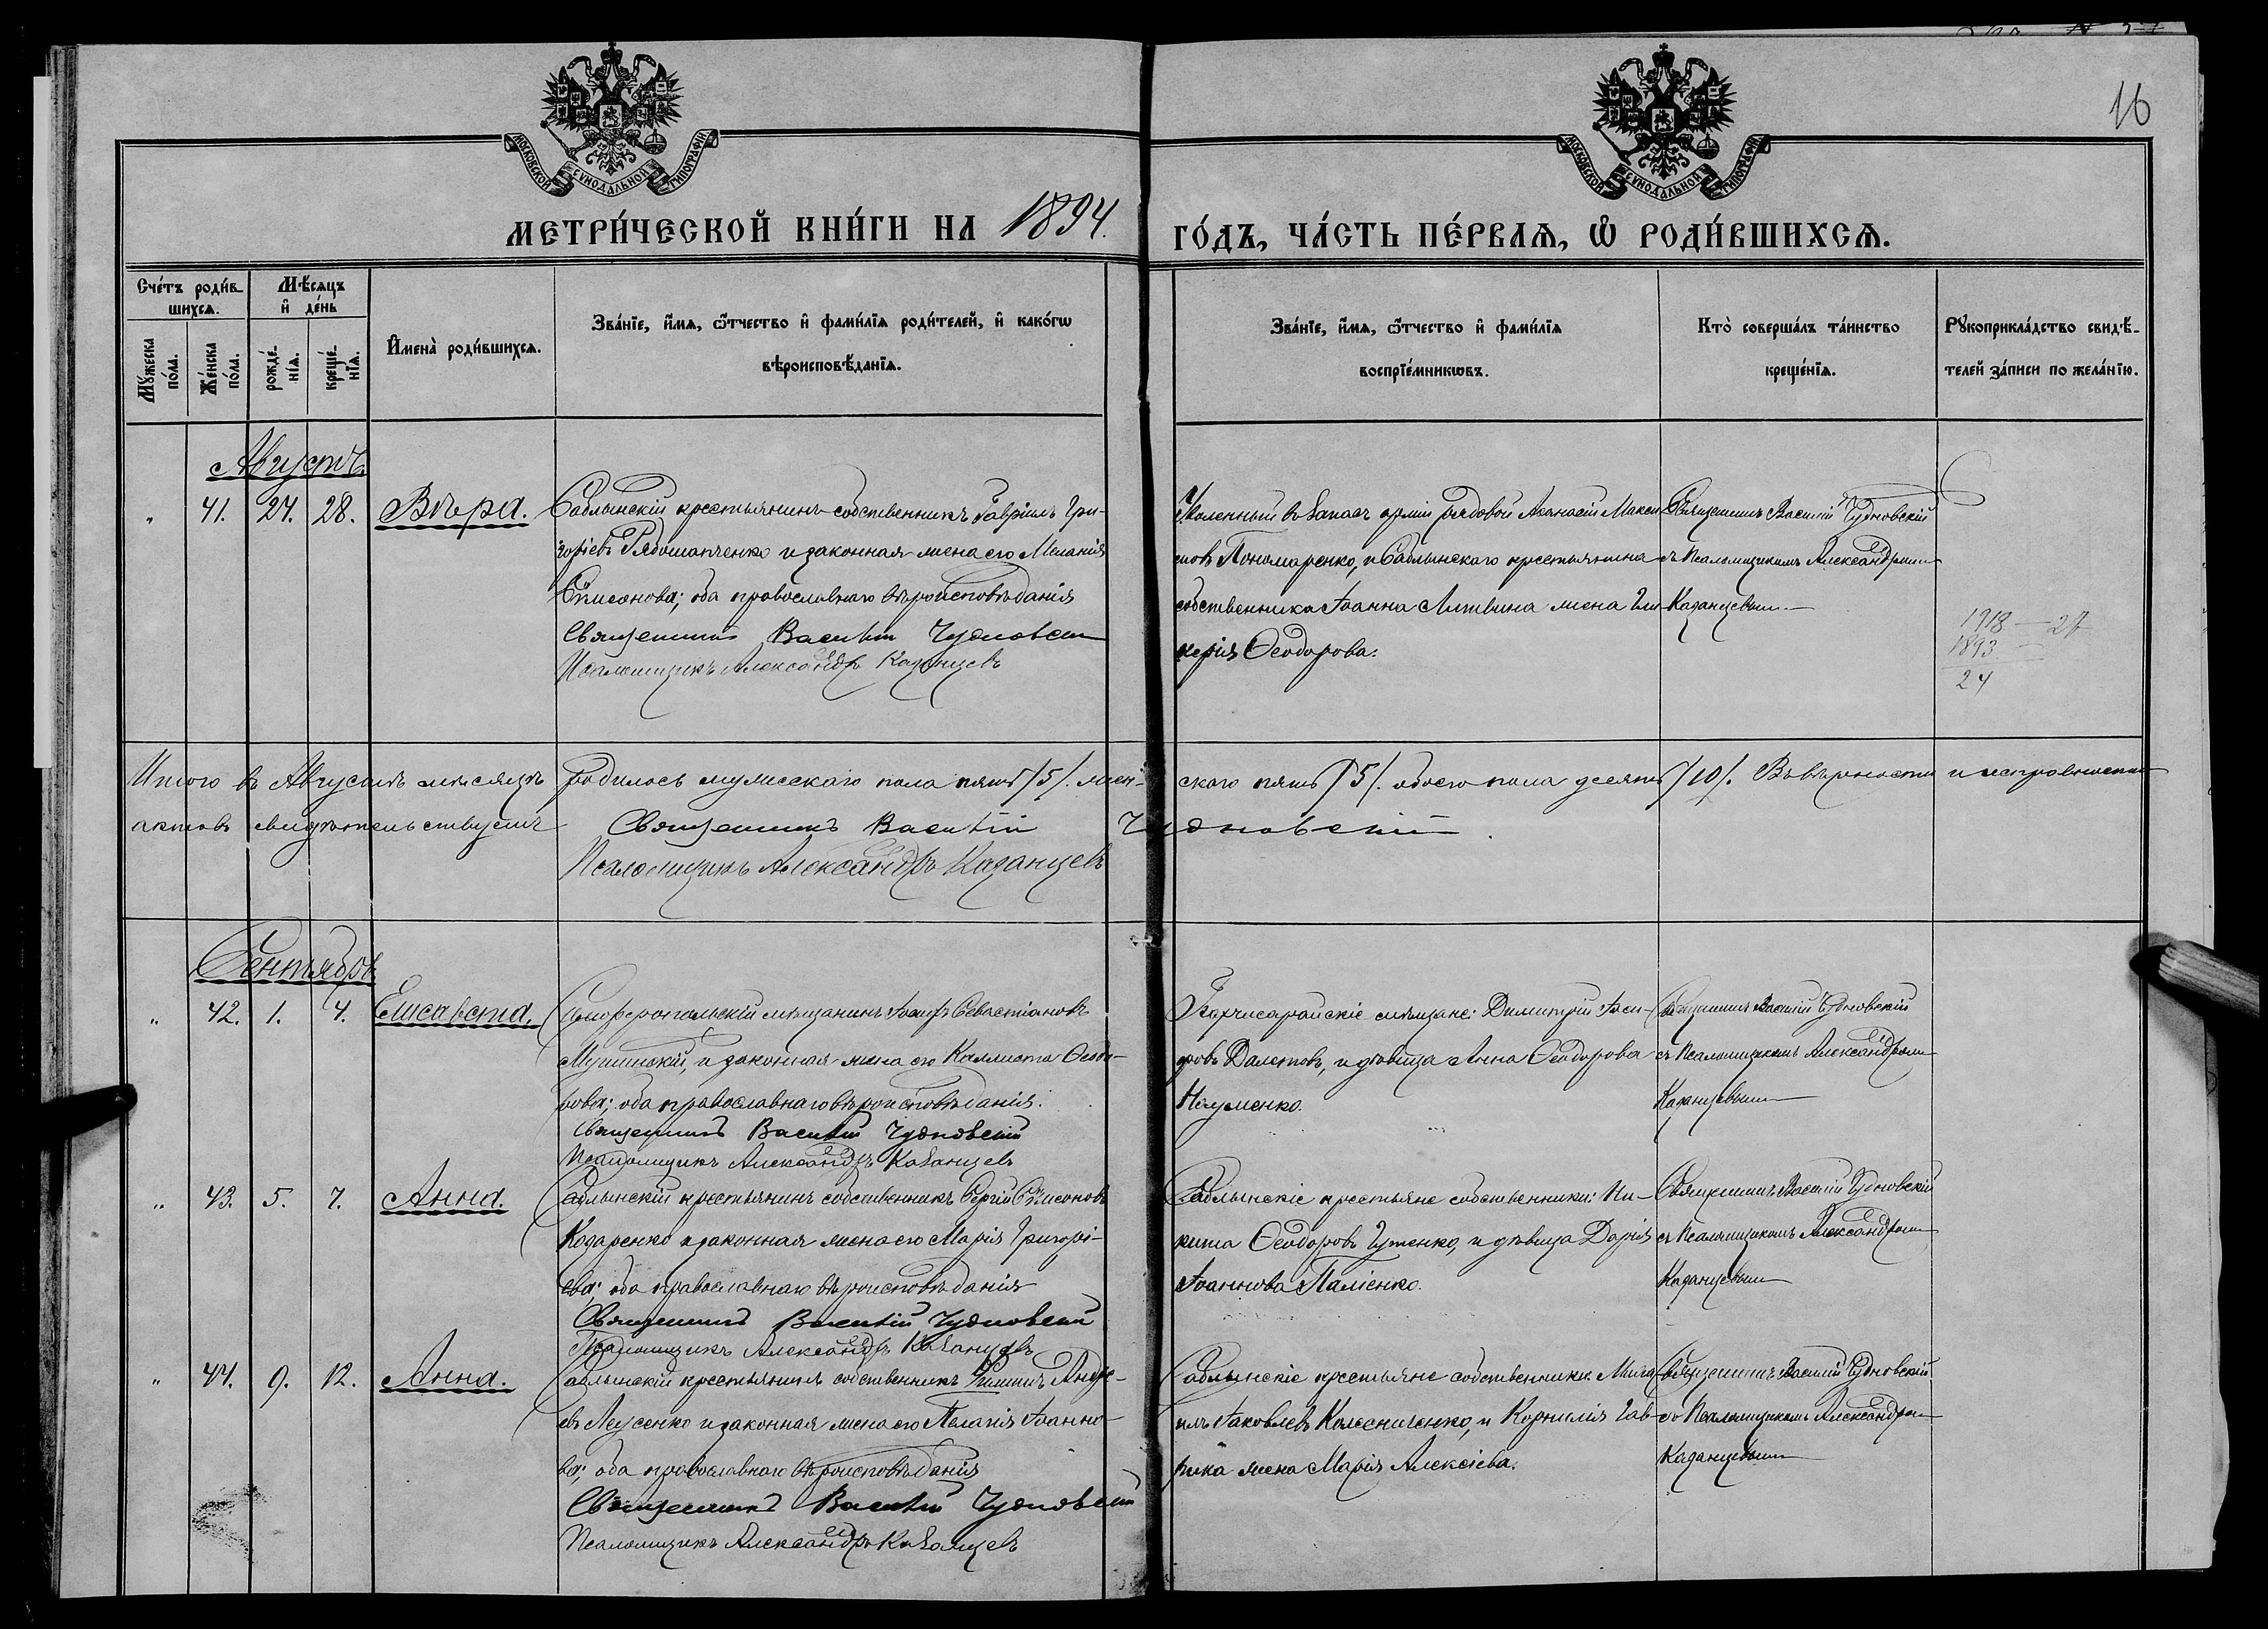 16
МОСКОВСКОЙ СѴНОДАЛЬНОЙ ТИПОГРАФІИ
МОСКОВСКОЙ СѴНОДАЛЬНОЙ ТИПОГРАФІИ
МЕТРИ́ЧЕСКОЙ КНИ́ГИ НА 1894. ГО́ДЪ, ЧА́СТЬ ПЕ́РВАѦ, Ѽ РОДИ́ВШИХСѦ.
Сче́тъ роди́в-
шихсѧ.
Мѣ́сѧцъ
и҆ де́нь
Мꙋ́жеска по́ла.
Же́нска по́ла.
рожде́-
нїѧ.
креще́-
нїѧ.
И҆мена̀ роди́вшихсѧ.
Зва́нїе, и҆́мѧ, ѻ҆́тчество и҆ фами́лїѧ роди́телей, и҆ како́гѡ
вѣроисповѣ́данїѧ.
Зва́нїе, и҆́мѧ, ѻ҆́тчество и҆ фами́лїѧ
воспрїе́мникѡвъ.
Кто̀ соверша́лъ та́инство
креще́нїѧ.
Рꙋкоприкла́дство свидѣ́-
телей за́писи по жела́нїю.
Августъ.
" 41. 24. 28. Вѣра.
Саблынскій крестьянинъ собственникъ Гавріилъ Гри-
горіевъ Рябошапченко и законная жена его Меланія
; оба православнаго вѣроисповѣданія
Священникъ Василій Чудновскій
Псаломщикъ Александръ Казанцевъ
Уволенный въ запасъ арміи рядовой Аѳанасій Макси
мовъ Пономаренко, и Саблынскаго крестьянина
собственника Іоанна Литвина жена Гли-
керія Ѳеодорова.
Священникъ Василій Чудновскій
съ Псаломщикомъ Александромъ
Казанцевымъ
1918 — 24
1893 —
24
Итого въ Августѣ мѣсяцѣ родилось мужескаго пола пять /5/. жен-скаго пять /5/. обоего пола десять /10/. Въ вѣрности и исправности
актовъ свидѣтельствуемъ Священникъ Василій Чудновскій.
Псаломщикъ Александръ Казанцевъ
Сентябрь
" 42. 1. 4. Елисавета.
Симферопольскій мѣщанинъ Іосифъ Севастіановъ
и законная жена его Каллиста Ѳеодо-
рова; оба православнаго вѣроисповѣданія.
Священникъ Василій Чудновскій
Псаломщикъ Александръ Казанцевъ
Бахчисарайскіе мѣщане: Димитрій Іоси-
фовъ Далетовъ, и дѣвица Анна Ѳеодорова
Науменко.
Священникъ Василій Чудновскій
съ Псаломщикомъ Александромъ
Казанцевымъ
" 43. 5. 7. Анна.
Саблынскій крестьянинъ собственникъ Сергій
Кодаренко и законная жена его Марія Григорі-
ева; оба православнаго вѣроисповѣданія
Священникъ Василій Чудновскій
Псаломщикъ Александръ Казанцевъ
Саблынскіе крестьяне собственники: Ни-
кита Ѳеодоровъ Гуженко, и дѣвица Дарія
Іоаннова Паліенко.
Священникъ Василій Чудновскій
съ Псаломщикомъ Александромъ
Казанцевымъ
" 44. 9. 12. Анна.
Саблынскій крестьянинъ собственникъ Филиппъ Андре-
евъ Леусенко и законная жена его Пелагія Іоанно-
ва; оба православнаго вѣроисповѣданія
Священникъ Василій Чудновскій
Псаломщикъ Александръ Казанцевъ
Саблынскіе крестьяне собственники: Миха-
илъ Іаковлевъ Колесниченко, и Корнилія Гав-
рика жена Марія Алексіева.
Священникъ Василій Чудновскій
со Псаломщикомъ Александромъ
Казанцевымъ